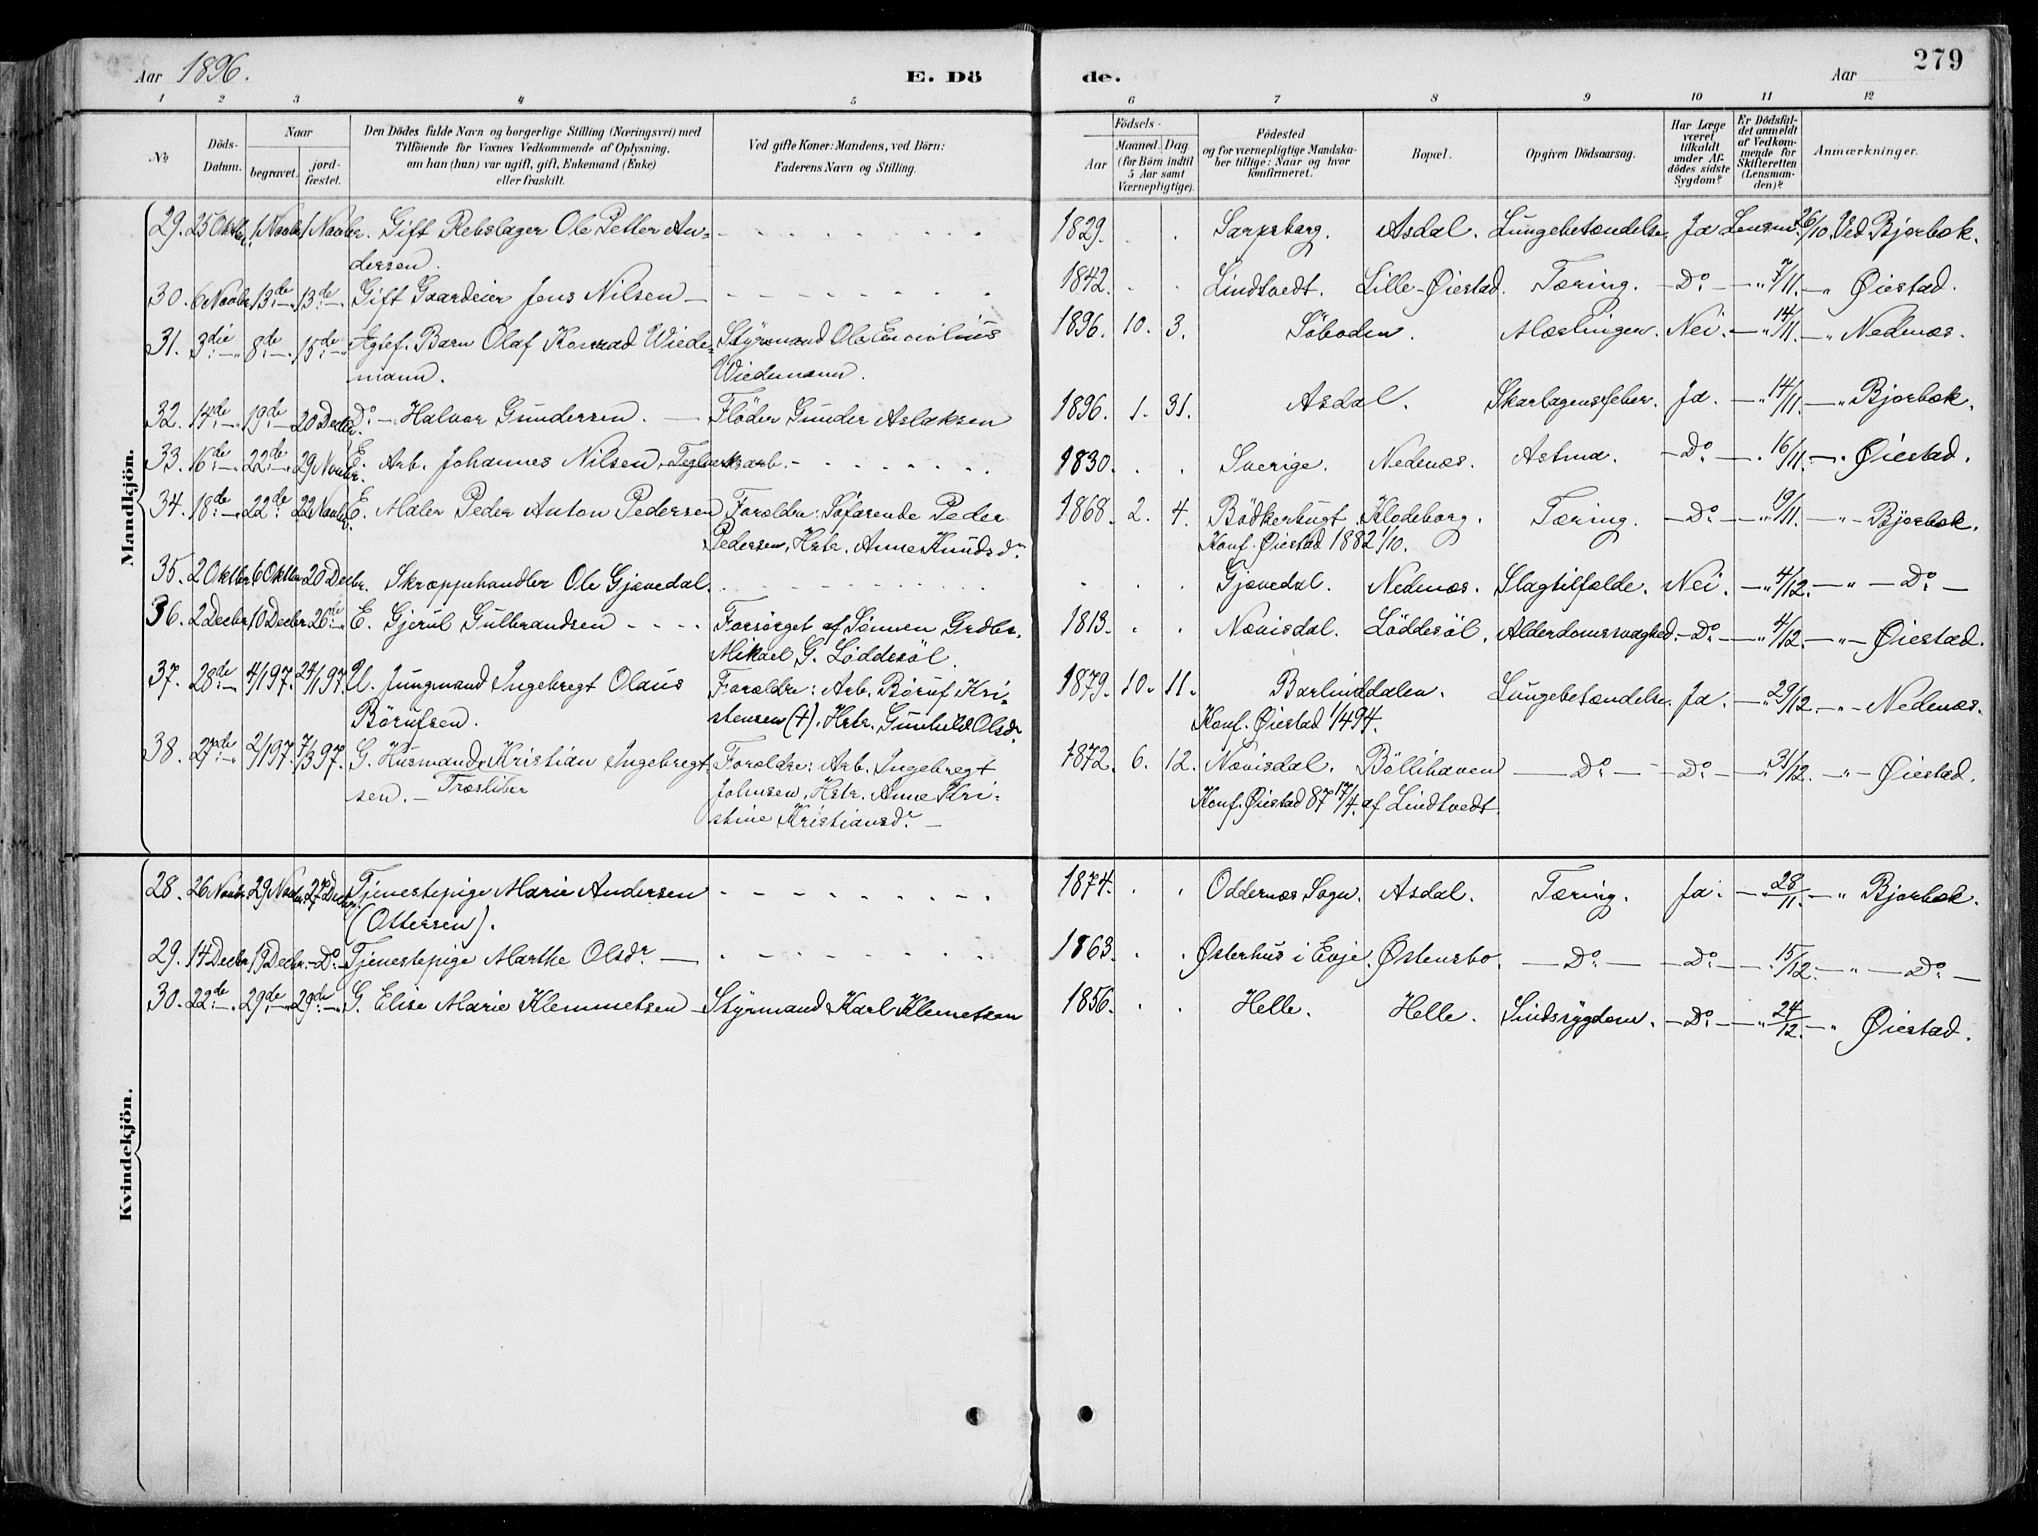 Aar 1896. E. Dö de. Aar 279
1 2 3 4 5 6 7 8 9 10 11 12
No
Döds-Datum.
Naar
begravet.
jord-fæstet.
Den Dödes fulde Navn og borgerlige Stilling (Næringsvei) med
Tilföiende for Voxnes Vedkommende af Oplysning,
om han (hun) var ugift, gift, Enkemand (Enke)
eller fraskilt.
Ved gifte Koner: Mandens, ved Börn:
Faderens Navn og Stilling.
Födsels-
Aar
Maaned. (for Börn indtil 5 Aar samt Værnepligtige).
Dag
Födested
og for værnepligtige Mandska-
ber tillige: Naar og hvor
konfirmeret.
Bopæl.
Opgiven Dödsaarsag.
Har Læge
været
tilkaldt
under Af-
dödes sidste
Sygdom?
Er Dödsfal-
det anmeldt
af Vedkom-
mende for
Skifteretten
(Lensman-
den)?
Anmærkninger.
Mandkjön.
29. 25 Oktbr. 1 Novbr. 1 Novbr. Gift Rebslager Ole Petter An- 1829. Sarpsborg. Asdal. Lungebetændelse. Ja Lensm. 26/10. Ved Bjorbæk.
dersen.
30. 6 Novbr. 13de 13de Gift Gaardeier Jens Nilsen 1842. Lindtvedt. Lille-Øiestad. Tæring. Do „ 7/11. „ Øiestad.
31. 3die 8de 15de Egtef. Barn Olaf Konrad Wiede- Styrmand Ole 1896. 10. 3. Söboden. Mæslinger. Nei. „ 14/11. „ Nedenæs.
mann. Wiedemann.
32. 14de 19de 20 Decbr. Do Halvor Gundersen. Flöder Gunder Aslaksen 1896. 1. 31. Asdal. Skarlagensfeber. Ja. „ 14/11. „ Bjorbæk.
33. 16de 22de 29 Novbr. E. Arb. Johannes Nilsen, Teglverksarb. 1830. Sverige. Nedenæs. Astma. Do „ 16/11. „ Øiestad.
34. 18de 22de 22 Novbr. E. Maler Peder Anton Pedersen Forældre: Söfarende Peder 1868. 2. 4. Bödkerbugt. Klodeborg. Tæring. Do „ 19/11. „ Bjorbæk.
Pedersen, Hstr. Anne Knudsdr. Konf. Øiestad 1882 1/10.
35. 2 Oktbr 6 Oktbr 20 Decbr. Skræppehandler Ole Gjævedal. Gjævedal. Nedenæs. Slagtilfælde. Nei. „ 4/12. „ Do
36. 2 Decbr 10 Decbr 26de E. Gjerul Gulbrandsen Forsörget af Sönnen Grdbr. 1813. Nævisdal. Löddesöl. Alderdomssvaghed. Do „ 4/12. „ Øiestad.
Mikael G. Löddesöl.
37. 28de 4/1 97. 24/1 97. U. Jungmand Ingebregt Olaus Forældre: Arb. Böruf Kri- 1879. 10. 11. Barlinddalen. Lungebetændelse. Ja. „ 29/12. „ Nedenæs.
Börufsen. stensen (†). Hstr. Gunhild Olsdr. Konf. Øiestad 1/4 94.
38. 27de 2/1 97. 7/3 97. G. Husmand Kristian Ingebregt- Forældre: Arb. Ingebregt 1872. 6. 12. Nævisdal. Böllihaven Do Do „ 31/12. „ Øiestad.
sen. Træsliber Johnsen, Hstr. Anne Kri- Konf. Øiestad 87 17/4. af Lindtvedt.
stine Kristiansdr.
Kvindekjön.
28. 26 Novbr. 29 Novbr. 27 Decbr. Tjenestepige Marie Andersen 1874. Oddernæs Sogn. Asdal. Tæring. Ja. 28/11. „ Bjorbæk.
(Ottersen).
29. 14 Decbr 19 Decbr. Do Tjenestepige Marthe Olsdr. 1863. Østerhus i Evje. Østensbo. Do Do „ 15/12. „ Do
30. 22de 29de 29de G. Elise Marie Klemmetsen Styrmand Karl Klemetsen 1856. Helle. Helle. Sindssygdom. Do „ 24/12. „ Øiestad.